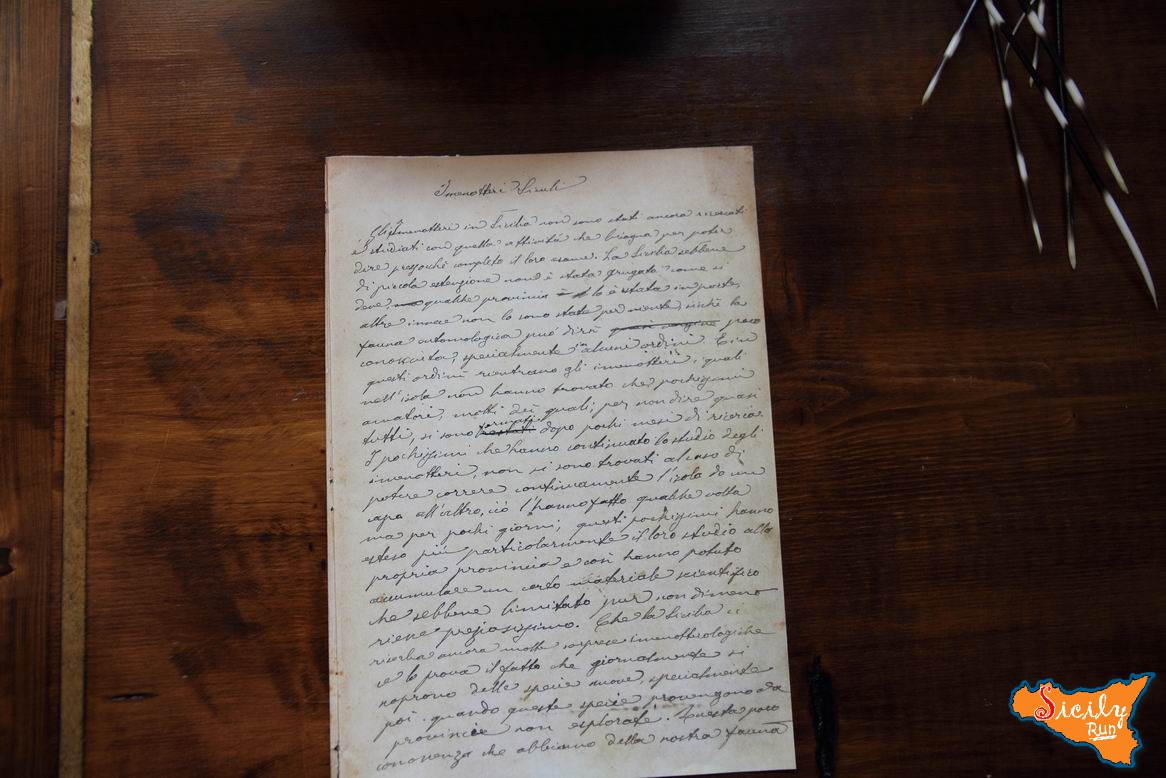 Imenotteri Siculi
Gli Imenotteri in Sicilia non sono stati ancora ricercati
e studiati con quella attività che bisogna per poter
dire pressochè completo il loro esame. La Sicilia sebbene
di piccola estenzione non è stata frugata come si
deve qualche provincia lo è stata in parte,
altre invece non lo sono state per niente, sicchè la
fauna entomologica può dirsi quasi vergine poco
conosciuta, specialmente in alcuni ordini. E in
questi ordini rientrano gli imenotteri, i quali
nell'isola non hanno trovato che pochissimi
amatori, molti dei quali, per non dire quasi
tutti, si sono dopo pochi mesi di ricerca.
I pochissimi che hanno continuato lo studio degli
imenotteri, non si sono trovati al caso di
potere correre continuamente l'isola da un
capo all'altro, ciò l'hanno fatto qualche volta
ma per pochi giorni; questi pochissimi hanno
esteso più particolarmente il loro studio alla
propria provincia e così hanno potuto
accumulare un certo materiale scientifico
che sebbene limitato pur non dimeno
riene preziosissimo. Che la Sicilia ci
riserba ancora molte sorprese imenotterologiche
ce lo prova il fatto che giornalmente si
scoprono delle specie nuove, specialmente
poi quando queste specie provengono da
provincie non esplorate. Questa poca
conoscenza che abbiamo della nostra fauna
Sicily
Run